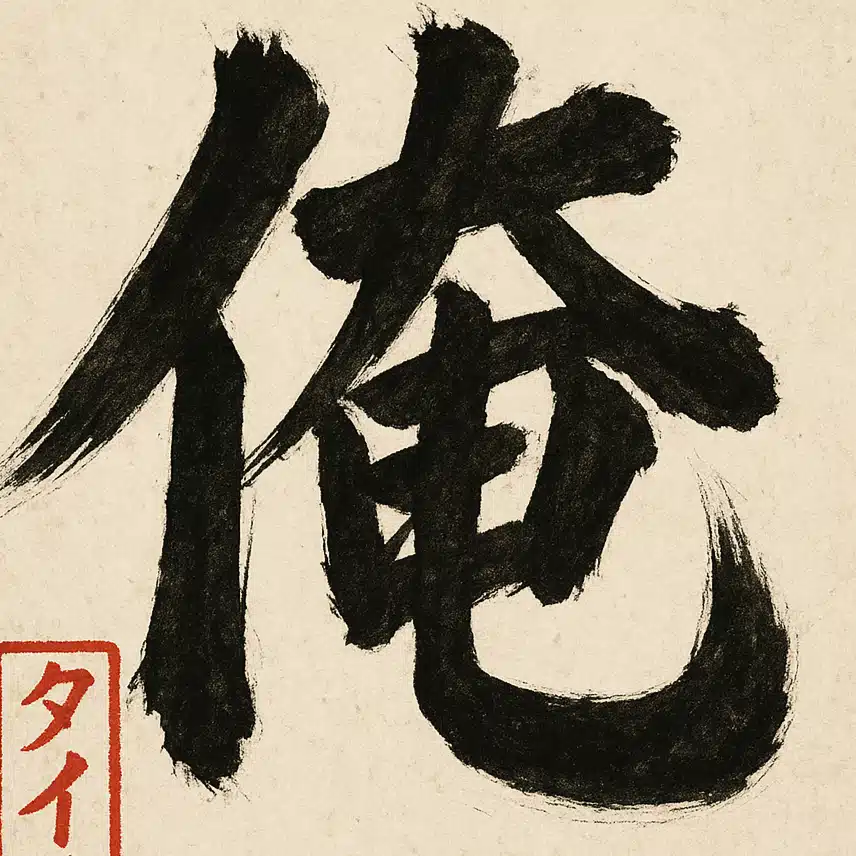 俺
タイ